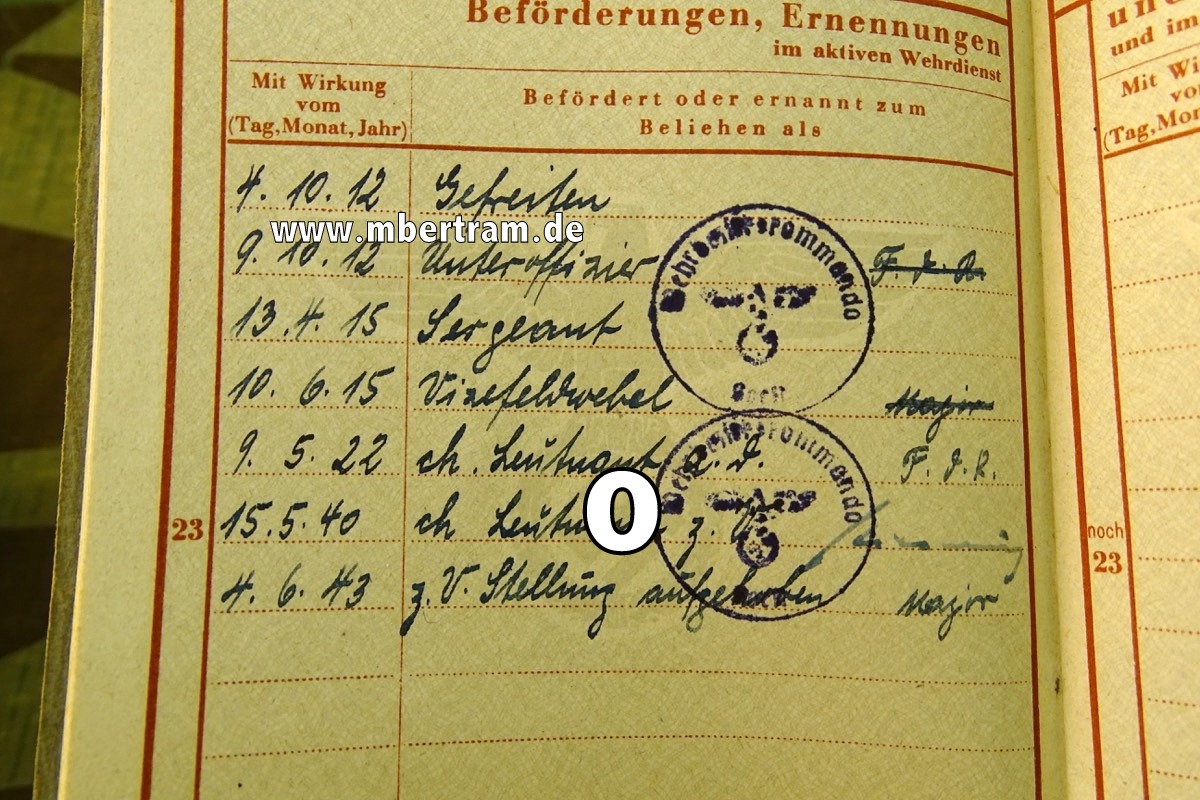 Beförderungen, Ernennungen
im aktiven Wehrdienst
Mit Wirkung
vom
(Tag, Monat, Jahr)
Befördert oder ernannt zum
Beliehen als
4. 10. 12 Gefreiten
www.mbertram.de
9. 10. 12 Unteroffizier F. d. R.
13. 4. 15 Sergeant
10. 6. 15 Vizefeldwebel Major
9. 5. 22 ch. Leutnant a. D. F. d. R.
23 15. 5. 40 ch Leutnant z. V.
4. 6. 43 z. V. Stellung aufgehoben Major
0
Wehrbezirkskommando
Wehrbezirkskommando
und im
Mit Wi
vo
(Tag, Mo
noch
23